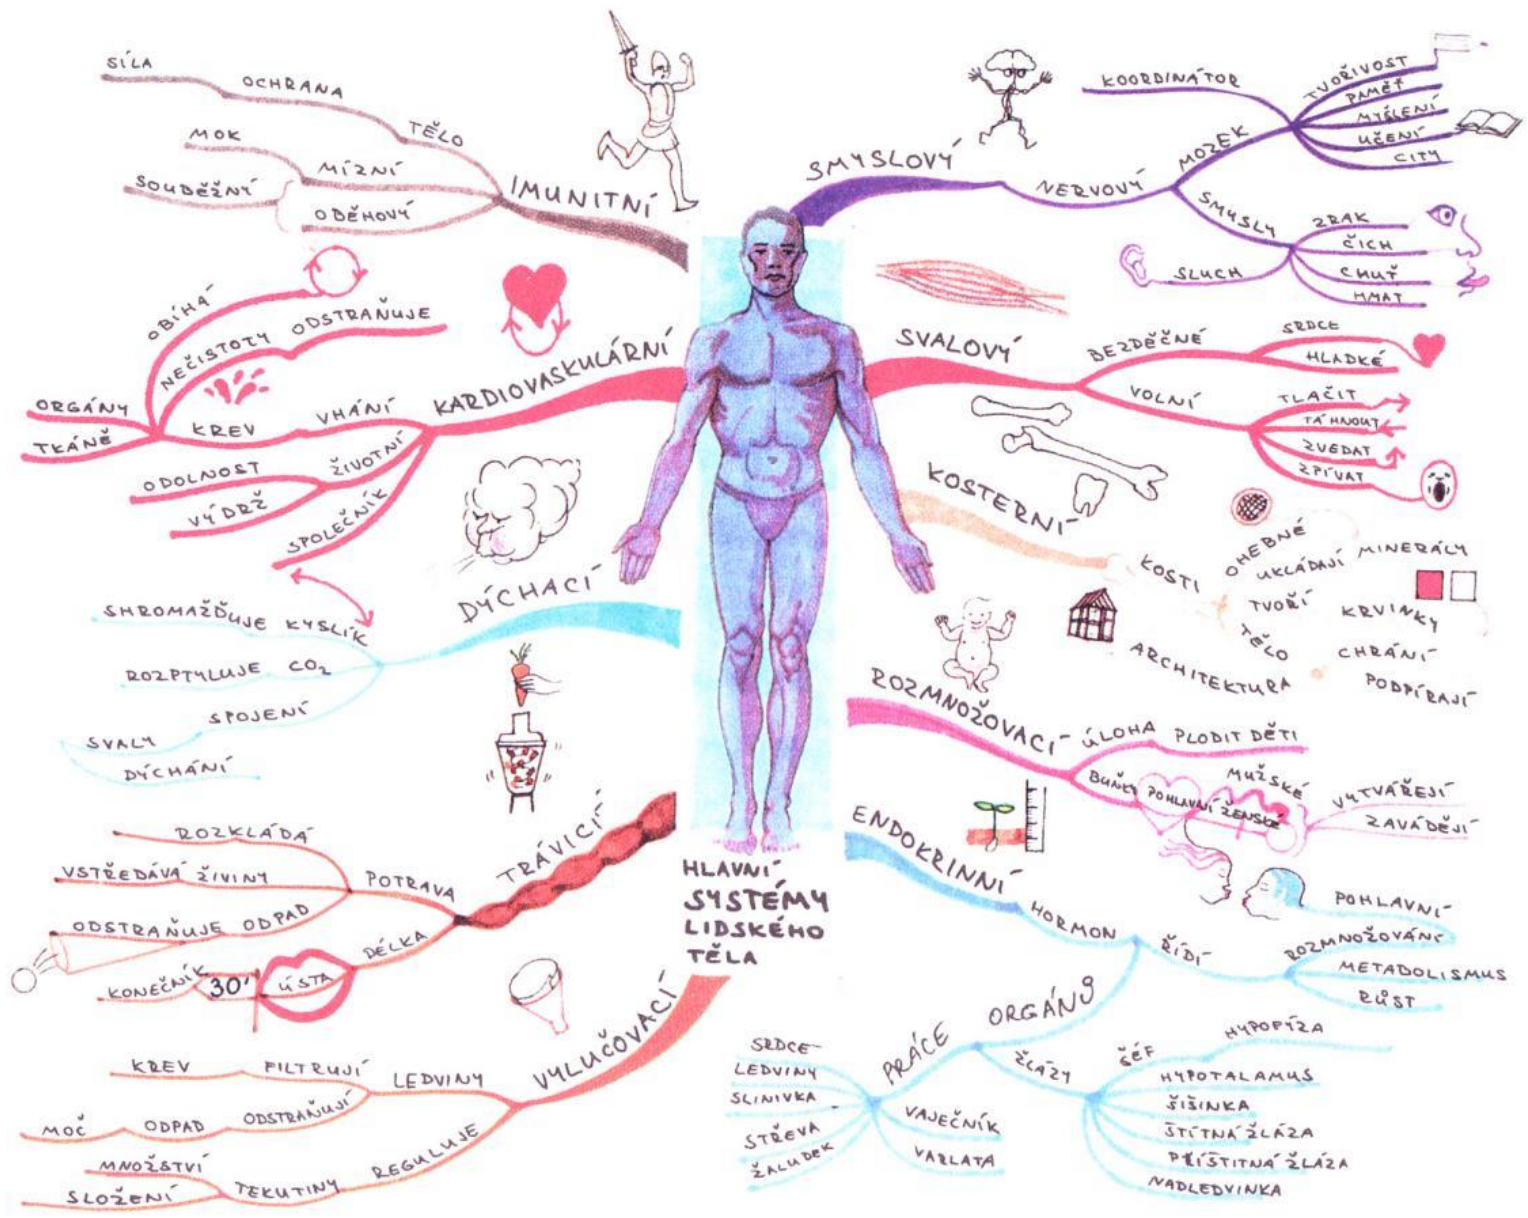 HLAVNÍ
SYSTÉMY
LIDSKÉHO
TĚLA
IMUNITNÍ
TĚLO
OCHRANA
SÍLA
MÍZNÍ
MOK
ODĚHOVÝ
SOUDĚŽNÝ
KARDIOVASKULÁRNÍ
VHÁNÍ
KREV
OBÍHÁ
NEČISTOTY
ODSTRAŇUJE
ORGÁNY
TKÁNĚ
ŽIVOTNÍ
ODOLNOST
VÝDRŽ
SPOLEČNÍK
DÝCHACÍ
SHROMAŽĎUJE KYSLÍK
ROZPTYLUJE CO₂
SPOJENÍ
SVALY
DÝCHÁNÍ
TRÁVICÍ
POTRAVA
ROZKLÁDÁ
VSTŘEDÁVÁ ŽIVINY
ODSTRAŇUJE ODPAD
DÉLKA
ÚSTA
30'
KONEČNÍK
VYLUČOVACÍ
LEDVINY
FILTRUJÍ
KREV
ODSTRAŇUJÍ
ODPAD
MOČ
REGULUJE
TEKUTINY
MNOŽSTVÍ
SLOŽENÍ
SMYSLOVÝ
NERVOVÝ
MOZEK
KOORDINÁTOR
TVOŘIVOST
PAMĚŤ
MYŠLENÍ
UČENÍ
CITY
SMYSLY
ZRAK
ČICH
CHUŤ
HMAT
SLUCH
SVALOVÝ
BEZDĚČNÉ
SRDCE
HLADKÉ
VOLNÍ
TLAČIT
TÁHNOUT
ZVEDAT
ZPÍVAT
KOSTERNÍ
KOSTI
OHEBNÉ
UKLÁDAJÍ
MINERÁLY
TVOŘÍ
KRVINKY
TĚLO
CHRÁNÍ
PODPÍRAJÍ
ARCHITEKTURA
ROZMNOŽOVACÍ
ÚLOHA
PLODIT DĚTI
BUŇKY
POHLAVNÍ
MUŽSKÉ
ŽENSKÉ
VYTVÁŘEJÍ
ZAVÁDĚJÍ
ENDOKRINNÍ
HORMON
ŘÍDÍ
POHLAVNÍ
ROZMNOŽOVÁNÍ
METABOLISMUS
RŮST
ORGÁNŮ
PRÁCE
SRDCE
LEDVINY
SLINIVKA
STŘEVA
ŽALUDEK
VAJEČNÍK
VARLATA
ŽLÁZY
ŠÉF
HYPOFÝZA
HYPOTALAMUS
ŠIŠINKA
ŠTÍTNÁ ŽLÁZA
PŘÍŠTITNÁ ŽLÁZA
NADLEDVINKA